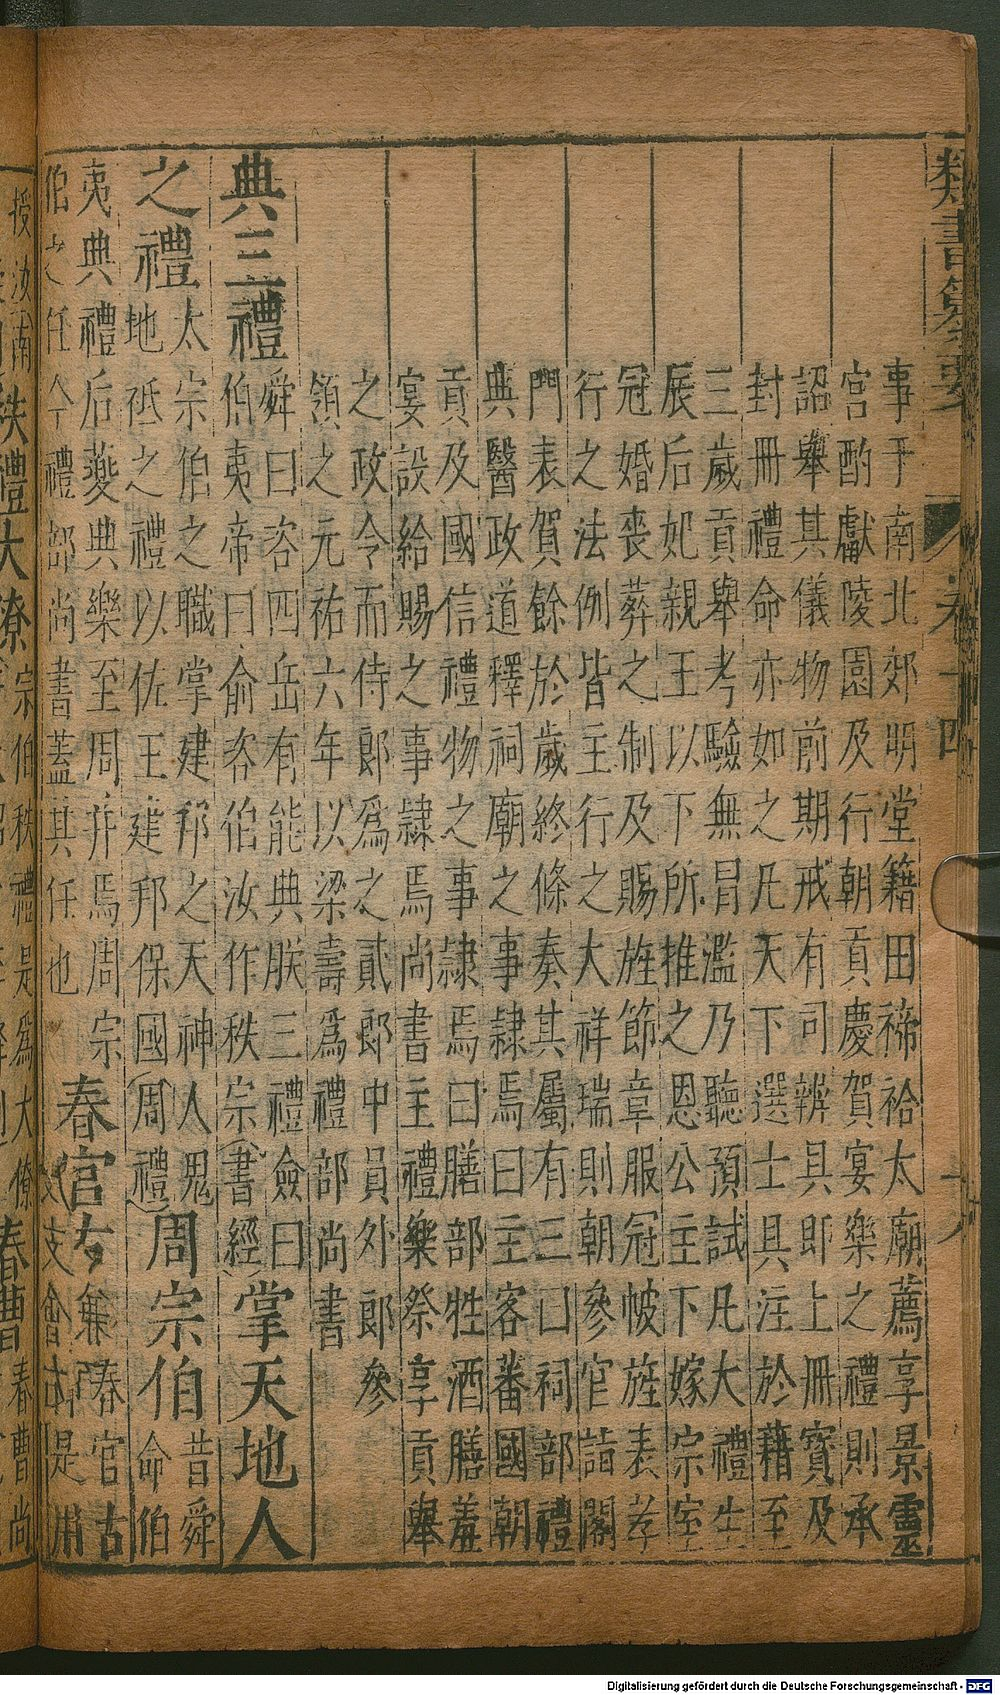 類書纂要 卷十四
事于南北郊明堂籍田禘祫太廟薦享景靈
宮酌獻陵園及行朝貢慶賀宴樂之禮則承
詔舉其儀物前期戒有司辨具即上冊寶及
封冊禮命亦如之凡天下選士具注於藉至
三歲貢舉考驗無冒濫乃聽預試凡大禮生
辰后妃親王以下所推之恩公主下嫁宗室
冠婚喪葬之制及賜旌節章服冠帔旌表孝
行之法例皆主行之大祥瑞則朝參官詣閣
門表賀餘於歲終條奏其屬有三曰祠部禮
典醫政道釋祠廟之事隷焉曰主客蕃國朝
貢及國信禮物之事隷焉曰膳部牲酒膳羞
宴設給賜之事隷焉尚書主禮樂祭享貢舉
之政令而侍郎爲之貳郎中員外郎參
領之元祐六年以梁壽爲禮部尚書
典三禮 舜曰咨四岳有能典朕三禮僉曰
伯夷帝曰俞咨伯汝作秩宗（書經） 掌天地人
之禮 太宗伯之職掌建邦之天神人鬼
地祇之禮以佐王建邦保國（周禮） 周宗伯 昔舜
命伯
夷典禮后夔典樂至周并焉周宗
伯之任今禮部尚書蓋其任也 春官 春官古
授汝南
秩禮大僚 宗伯秩禮是爲大僚 春曹 春曹尚
Digitalisierung gefördert durch die Deutsche Forschungsgemeinschaft - DFG